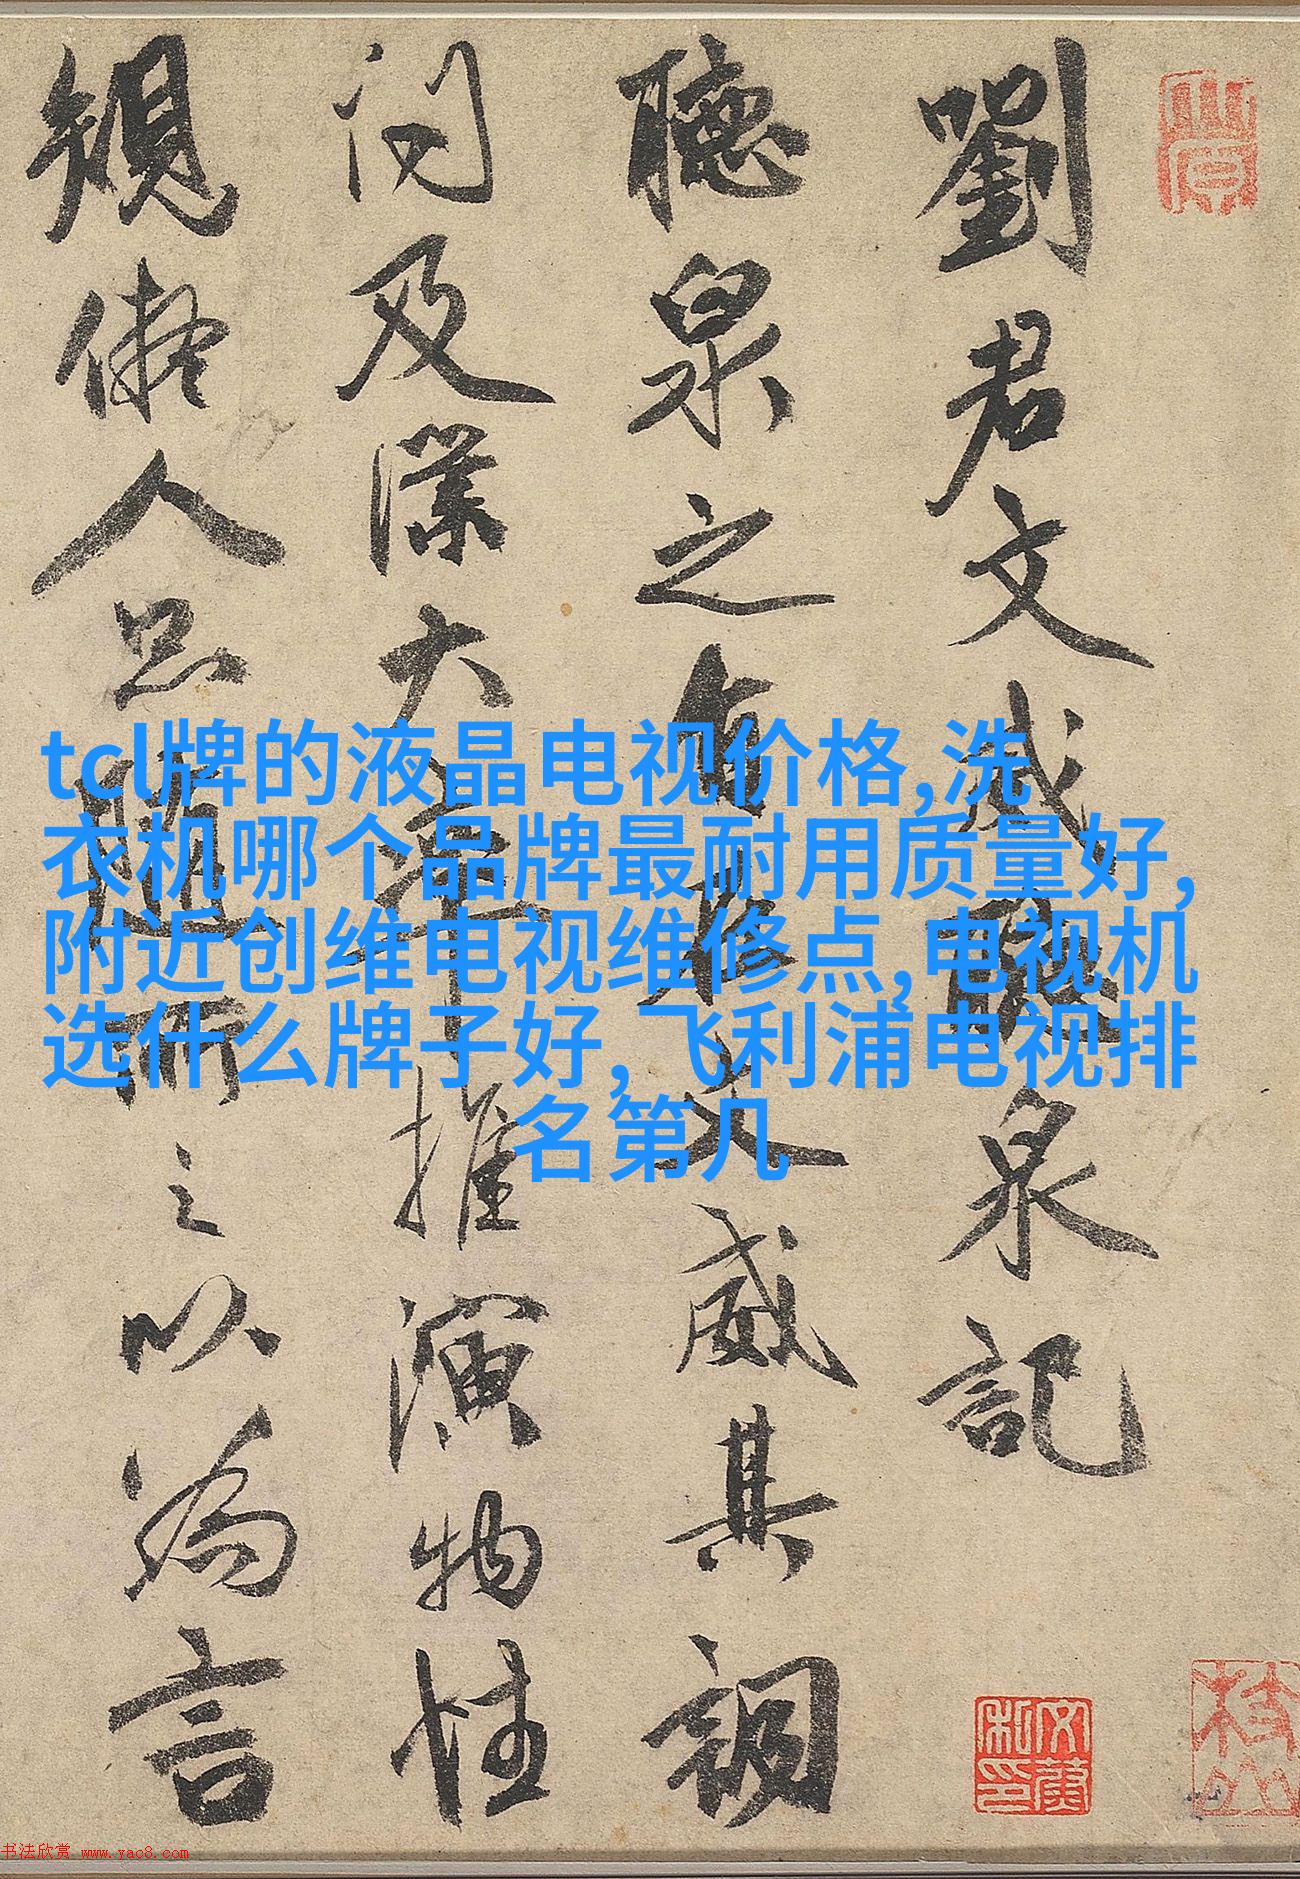 劉君文威聽泉記
聽泉之文威其調
问及深大率推演物性
規儗人品題而之以為言
tcl牌的液晶电视价格,洗
衣机哪个品牌最耐用质量好,
附近创维电视维修点,电视机
选什么牌子好,飞利浦电视排
名第几
书法欣赏 www.yac8.com